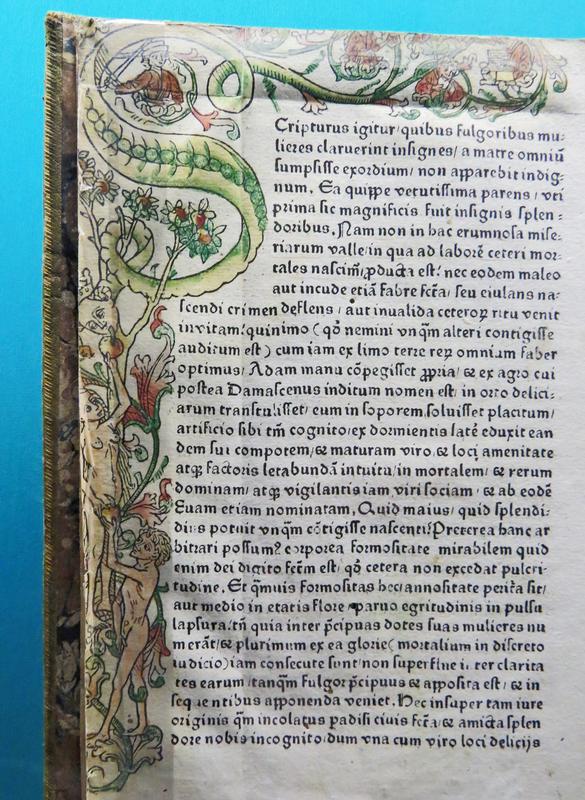 Scripturus igitur/quibus fulgoribus mu⸗
lieres claruerint insignes/a matre omniū
sumpsisse exordium/non apparebit indig⸗
num. Ea quippe vetutissima parens/vti
prima sic magnificis fuit insignis splen⸗
doribus. Nam non in hac erumnosa mise⸗
riarum valle/in qua ad laborē ceteri mor⸗
tales nascim̃/ꝓducta est/nec eodem maleo
aut incude etiā fabrefcta/seu eiulans na⸗
scendi crimen deflens/aut inualida ceteroꝝ ritu venit
in vitam/quinimo (qd̕ nemini vnq̃m alteri contigisse
auditum est) cum iam ex limo terre reꝝ omnium faber
optimus/Adam manu cōpegisset ꝓpria/& ex agro cui
postea Damascenus inditum nomen est/in orto delici⸗
arum transtulisset/eum in soporem soluisset placitum/
artificio sibi tm̄ cognito/ex dormientis latē eduxit ean
dem sui compotem/& maturam viro/& loci amenitate
atqꝫ factoris letabundā intuitu/inmortalem/& rerum
dominam/atqꝫ vigilantis iam viri sociam/& ab eodē
Euam etiam nominatam. Quid maius/quid splendi⸗
dius potuit vnq̃m cōtigisse nascenti? Preterea hanc ar
bitrari possum9 corporea formositate mirabilem quid
enim dei digito fcm̄ est/qd̕ cetera non excedat pulcri⸗
tudine. Et q̃muis formositas hec/annositate peritura sit/
aut medio in etatis flore paruo egritudinis in pulsu
lapsura/tn̄ quia inter p̄cipuas dotes suas mulieres nu
merāt/& plurimum ex ea glorie (mortalium indiscreto
iudicio) iam consecute sunt/non superflue inter clarita
tes earum/tanq̃m fulgor p̄cipuus & apposita est/& in
sequentibus apponenda veniet. Hec insuper tam iure
originis q̃m incolatus padisi ciuis fcta/& amicta splen
dore nobis incognito/dum vna cum viro loci delicijs